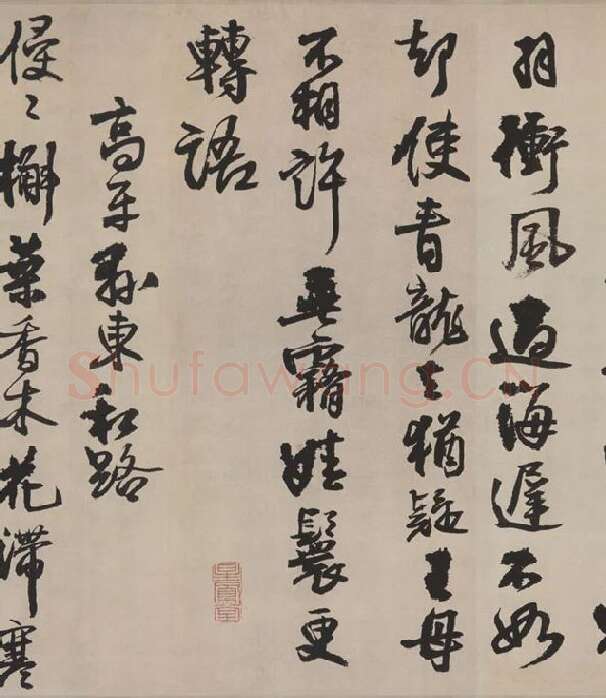 羽衝風過海遲不如
却使青龍去猶疑王母
不相許垂霧娃鬟更
轉語
高平縣東私路
侵〻槲葉香木花滯寒
Shufawang.CN